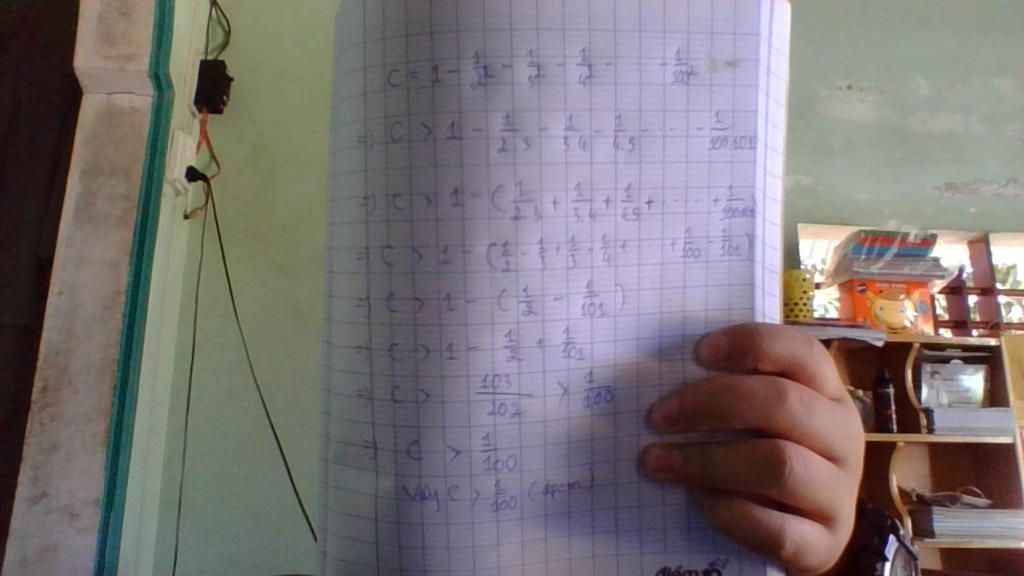 C = 1 - 1/2² - 1/3² - 1/4² - ..... - 1/100²
=> C > 1 - 1/2.3 - 1/3.4 - 1/4.5 - ..... - 1/100.101
=> C > 1 - ( 1/2.3 + 1/3.4 + 1/4.5 + ..... + 1/100.101 )
=> C > 1 - ( 1/2 - 1/3 + 1/3 - 1/4 + ... + 1/100 - 1/101 )
=> C > 1 - ( 1/2 - 1/101 )
=> C > 1 - 1/2 + 1/101
=> C > 103/202 > 1/100
=> C > 1/100
Vậy C > 1/100 (đpcm)